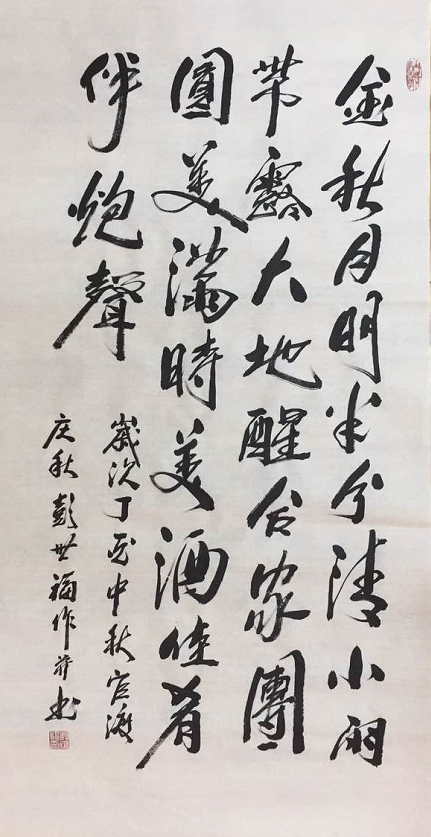 金秋月明半分清小雨
带露大地醒合家團
圓美滿時美酒佳肴
伴炮聲
歲次丁酉中秋官渡
庆秋彭世福作并书